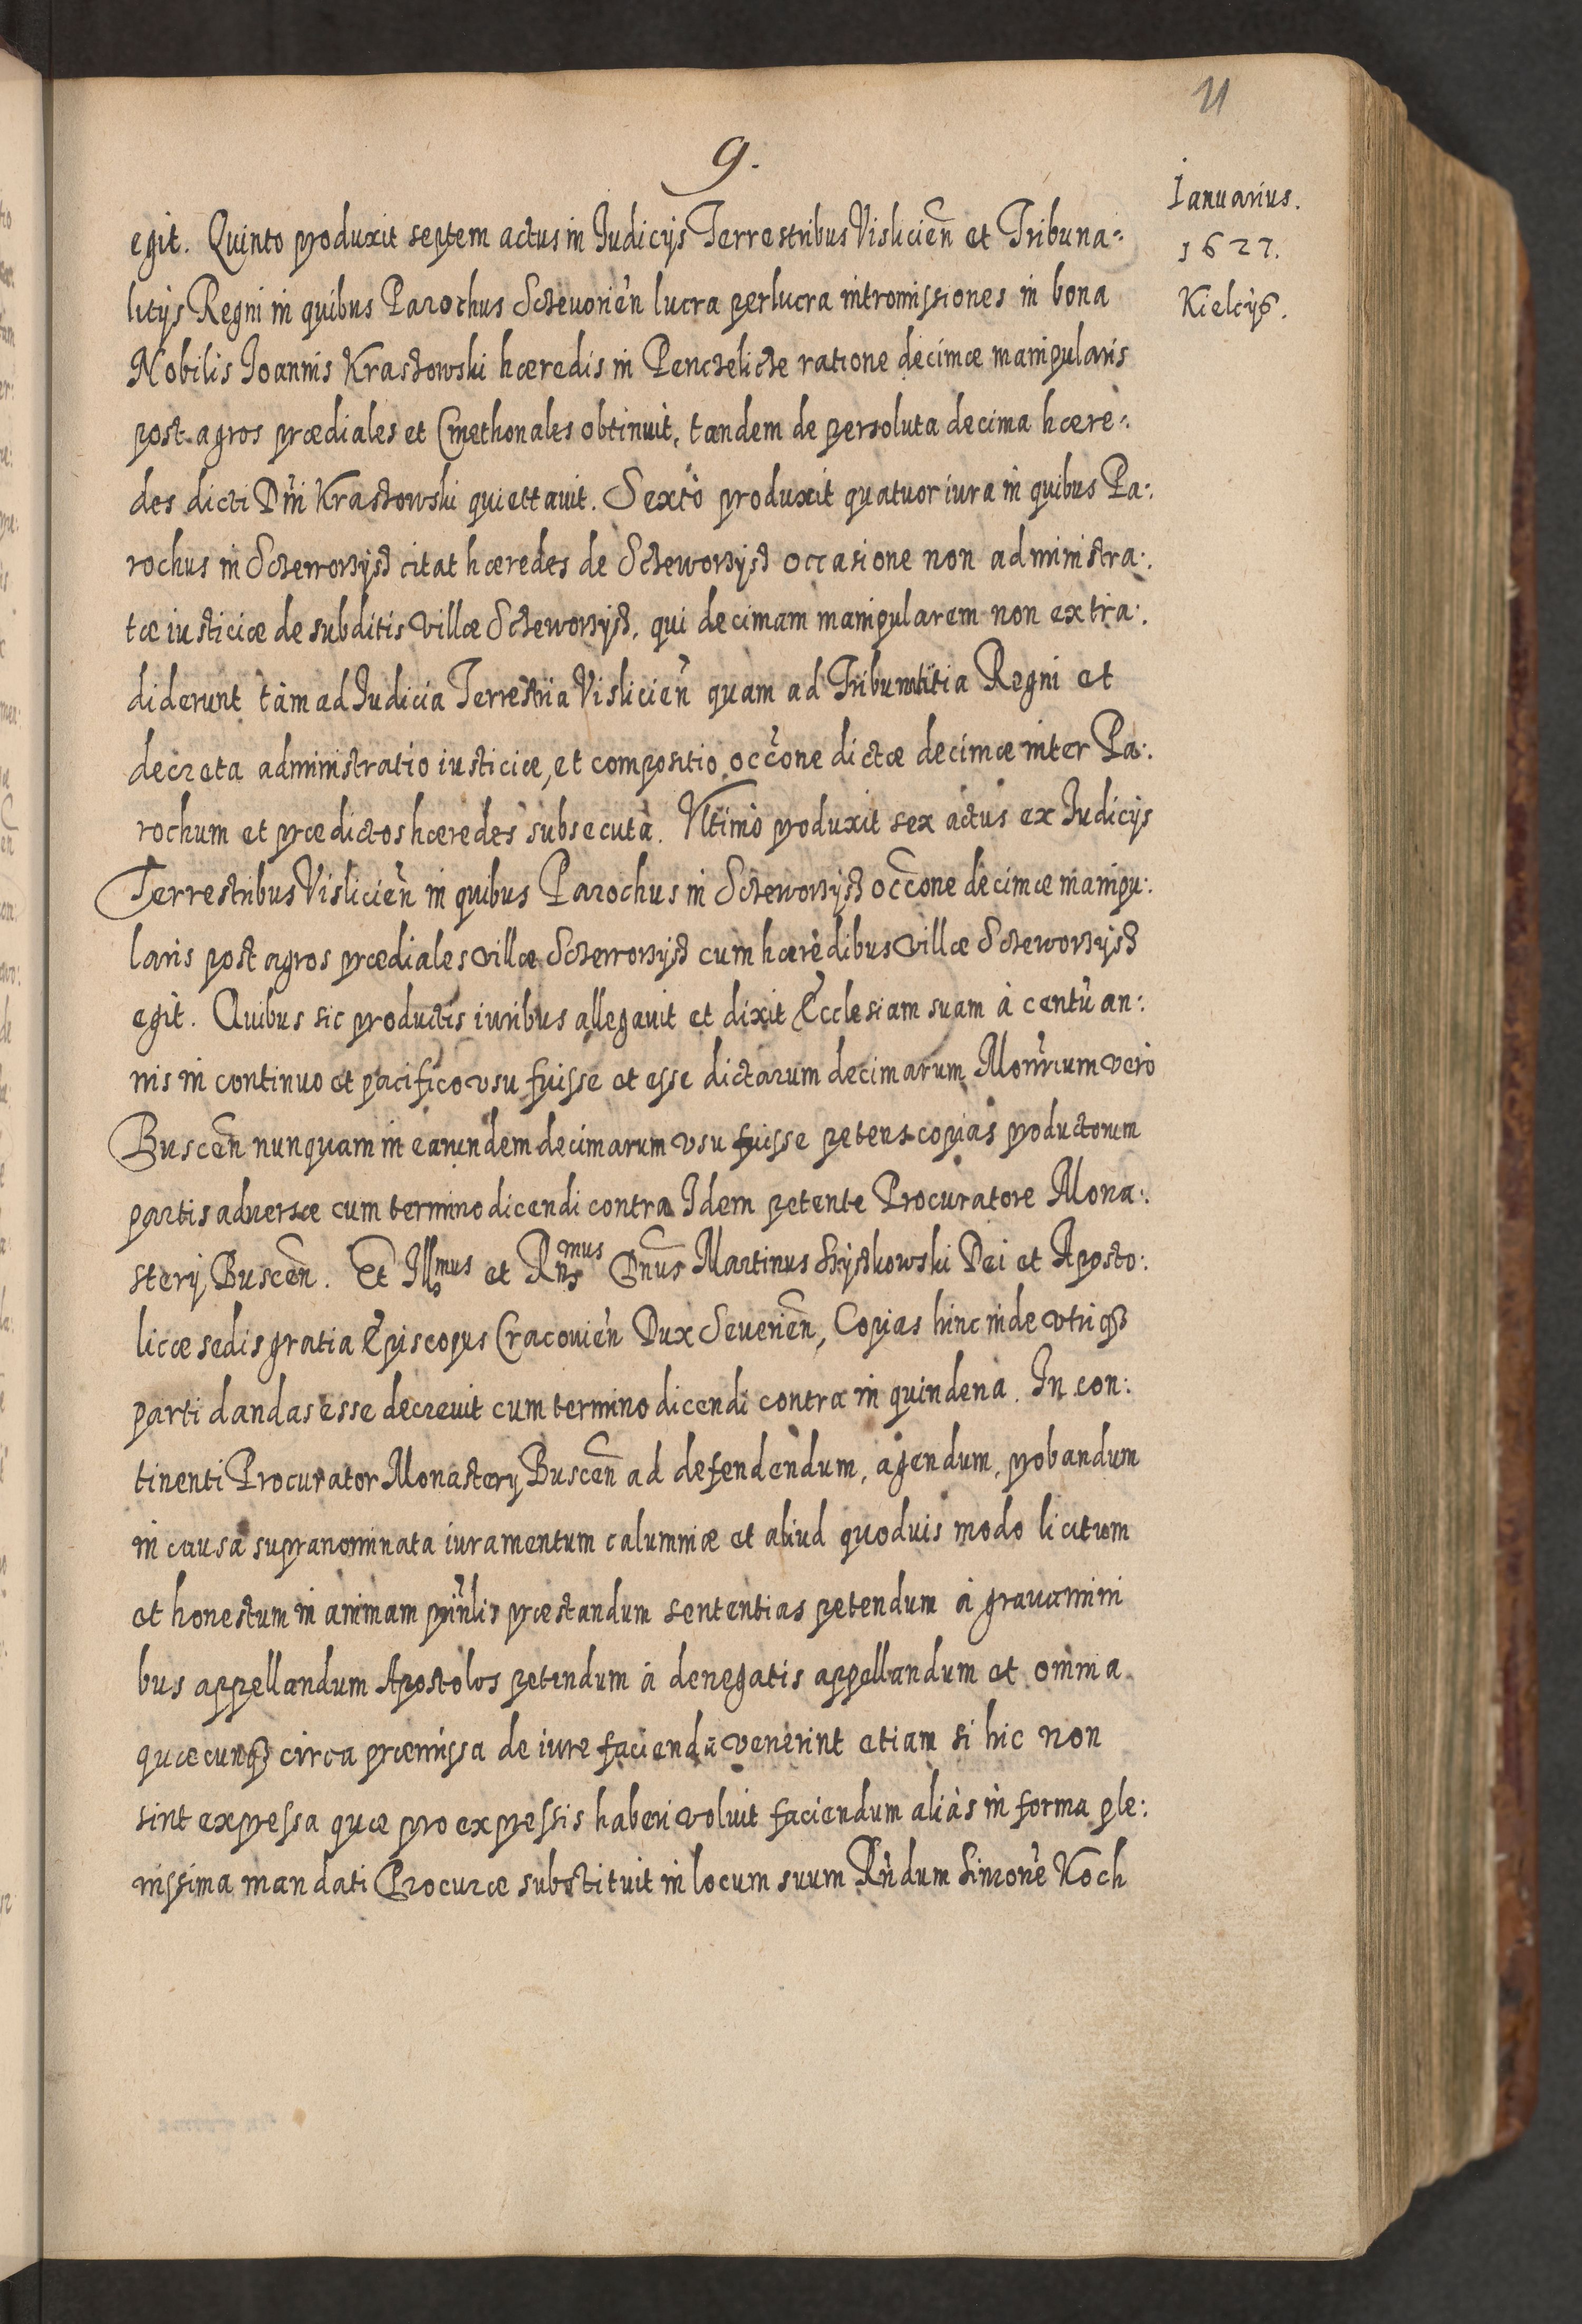 11
9.
Ianuarius.
1627.
Kielcijs.
egit. Quinto produxit septem actus in Iudicijs Terrestribus Vislicien̄ et Tribuna:
litijs Regni in quibus Parochus Sczeuorień lucra perlucra intromissiones in bona
Nobilis Ioannis Krastowski hæredis in Penczelicze ratione decimæ manipularis
post agros prædiales et Cmethonales obtinuit, tandem de persoluta decima hære:
des dicti Dn̄i Krastowski quiettauit. Sextò produxit quatuor iura in quibus Pa:
rochus in Sczeworzysz citat hæredes de Sczeworzysz occasione non administra:
tæ iusticiæ de subditis villæ Sczeworzysz, qui decimam manipularem non extra:
diderunt tàm ad Iudicia Terrestria Visliciен̄ quam ad Tribunalitia Regni et
decreta administratio iusticiæ, et compositio occ̄one dictæ decimæ inter Pa:
rochum et prædictos hæredes subsecuta. Vltimò produxit sex actus ex Iudicijs
Terrestribus Visliciен̄ in quibus Parochus in Sczeworzysz occ̄one decimæ manipu:
laris post agros prædiales villæ Sczeworzysz cum hæredibus villæ Sczeworzysz
egit. Quibus sic productis iuribus allegauit et dixit Ecclesiam suam à centū an:
nis in continuo et pacifico vsu fuisse et esse dictarum decimarum Mon̄rium verò
Buscen̄ nunquam in earundem decimarum vsu fuisse petens copias productorum
partis aduersæ cum termino dicendi contra Idem petente Procuratore Mona:
sterij Buscen̄. Et Illmus et Rn̄smus Dn̄us Martinus Szyszkowski Dei et Aposto:
licæ sedis gratia Episcopus Cracouień Dux Seuerien̄, Copias hinc inde vtriqȝ
parti dandas esse decreuit cum termino dicendi contra in quindena. In con:
tinenti Procurator Monasterij Buscen̄ ad defendendum, agendum, probandum
in causa supranominata iuramentum calumniæ et aliud quoduis modo licitum
et honestum in animam prin̄lis præstandum sententias petendum à grauamini
bus appellandum Apostolos petendum à denegatis appellandum et omnia
quæcunqȝ circa præmissa de iure facienda venerint etiam si hic non
sint expressa quæ pro expressis haberi voluit faciendum aliàs in forma ple:
nissima mandati Procuræ substituit in locum suum Rn̄dum Simonē Koch